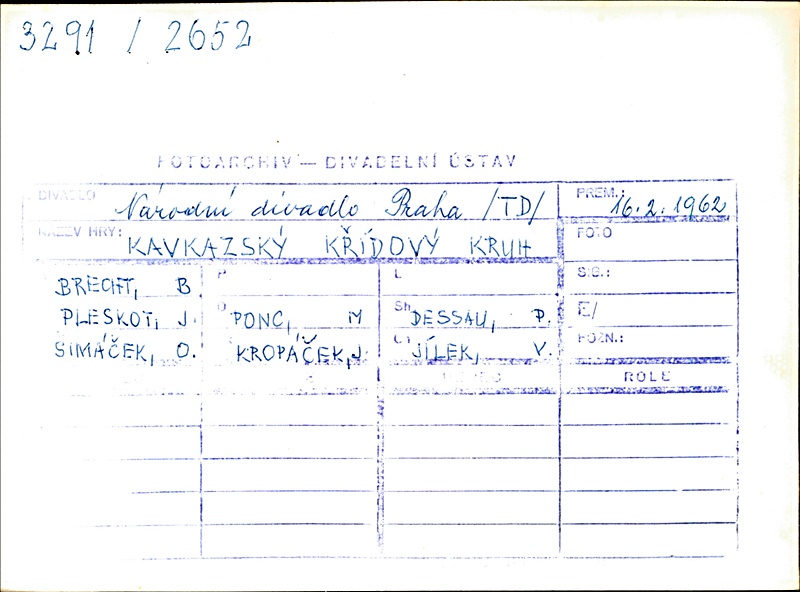 3291 / 2652
FOTOARCHIV — DIVADELNÍ ÚSTAV
DIVADLO Národní divadlo Praha /TD/ PREM.: 16.2.1962
NÁZEV HRY: KAVKAZSKÝ KŘÍDOVÝ KRUH FOTO
BRECHT, B. P L SIG.:
PLESKOT, J. PONC, M Sh DESSAU, P. E/
ŠIMÁČEK, O. KROPÁČEK, J. JÍLEK, V. POZN.:
ROLE